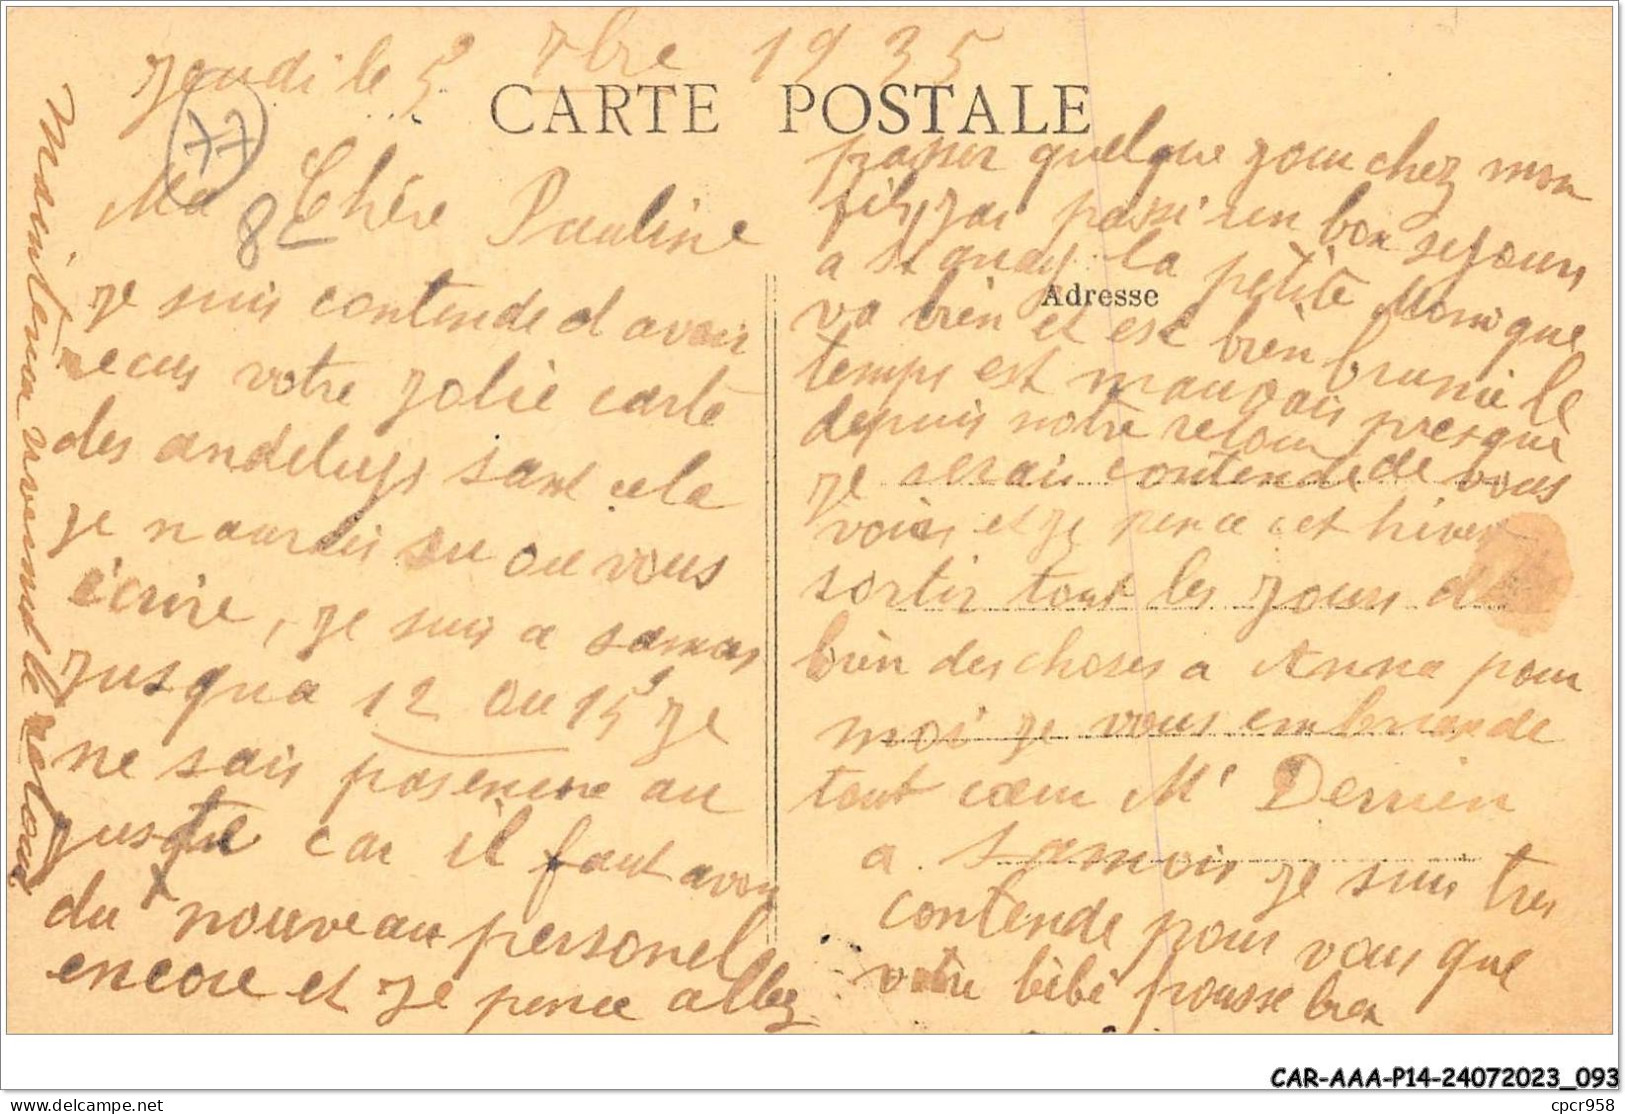 Jeudi le 5 7bre 1935
CARTE POSTALE
77
8€
Ma Chère Pauline
je suis contende d avoir
recus votre jolie carte
des andelys sant cela
je n aurais su ou vous
écrire, je suis a samois
jusqua 12 ou 15 je
ne sais pas encore au
juste car il faut avoir
du nouveau personel
encore et je pence allez
passer quelque jour chez mon
fils, jai passé un bon sejour
a St quay la petite Monique
Adresse
va bien et est bien brunie le
temps est mauvais presque
depuis notre retour
je serais contende de vous
voir et je pence cet hiver
sortir tout les jours de
bien des choses a Anna pour
moi je vous embrasse de
tout cœur M Derrien
a Samois je suis tres
contende pour vous que
votre bébé pousse bien
CAR-AAA-P14-24072023_093
delcampe.net
cpcr958